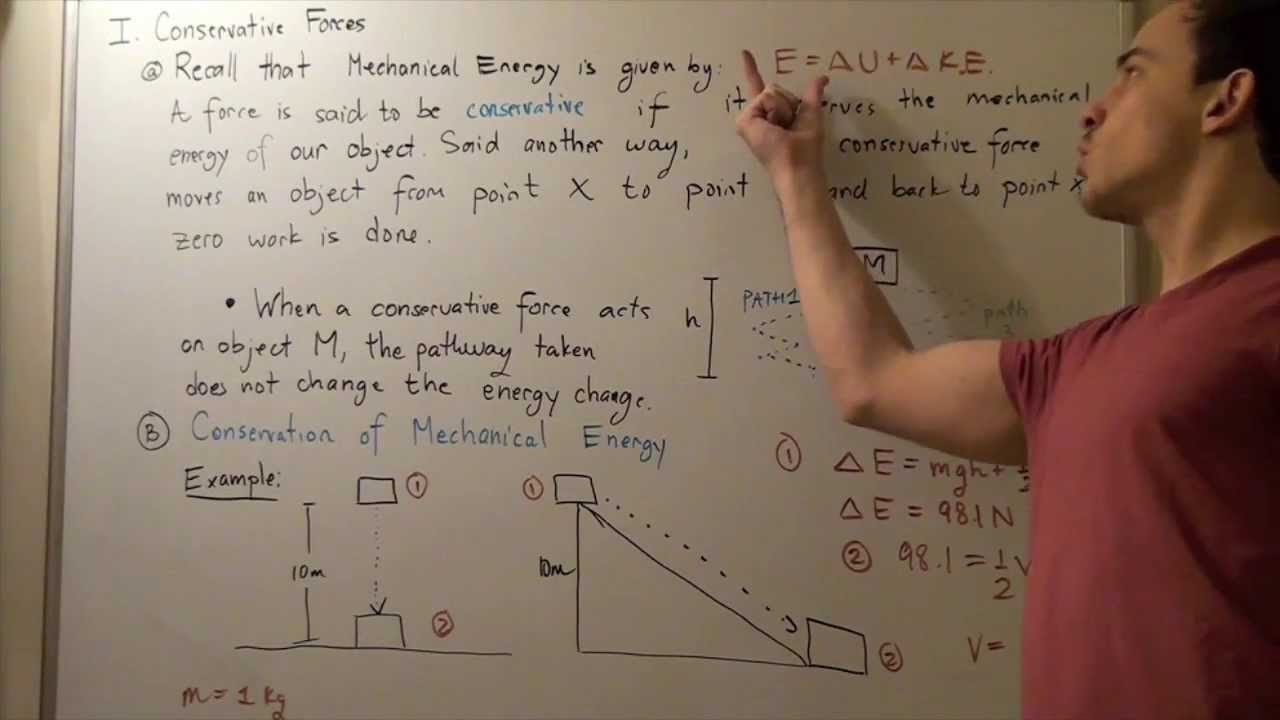 I. Conservative Forces
@ Recall that Mechanical Energy is given by: E = ΔU + Δ K.E.
A force is said to be conservative if it the mechanical
energy of our object. Said another way, conservative force
moves an object from point X to point and back to point x
zero work is done.
• When a conservative force acts
on object M, the pathway taken
does not change the energy change.
M
h
PATH 1
path
2
B Conservation of Mechanical Energy
Example:
①
②
10m
m = 1 kg
①
10m
②
① ΔE = mgh +
ΔE = 98.1N
② 98.1 = 1/2 V
V =